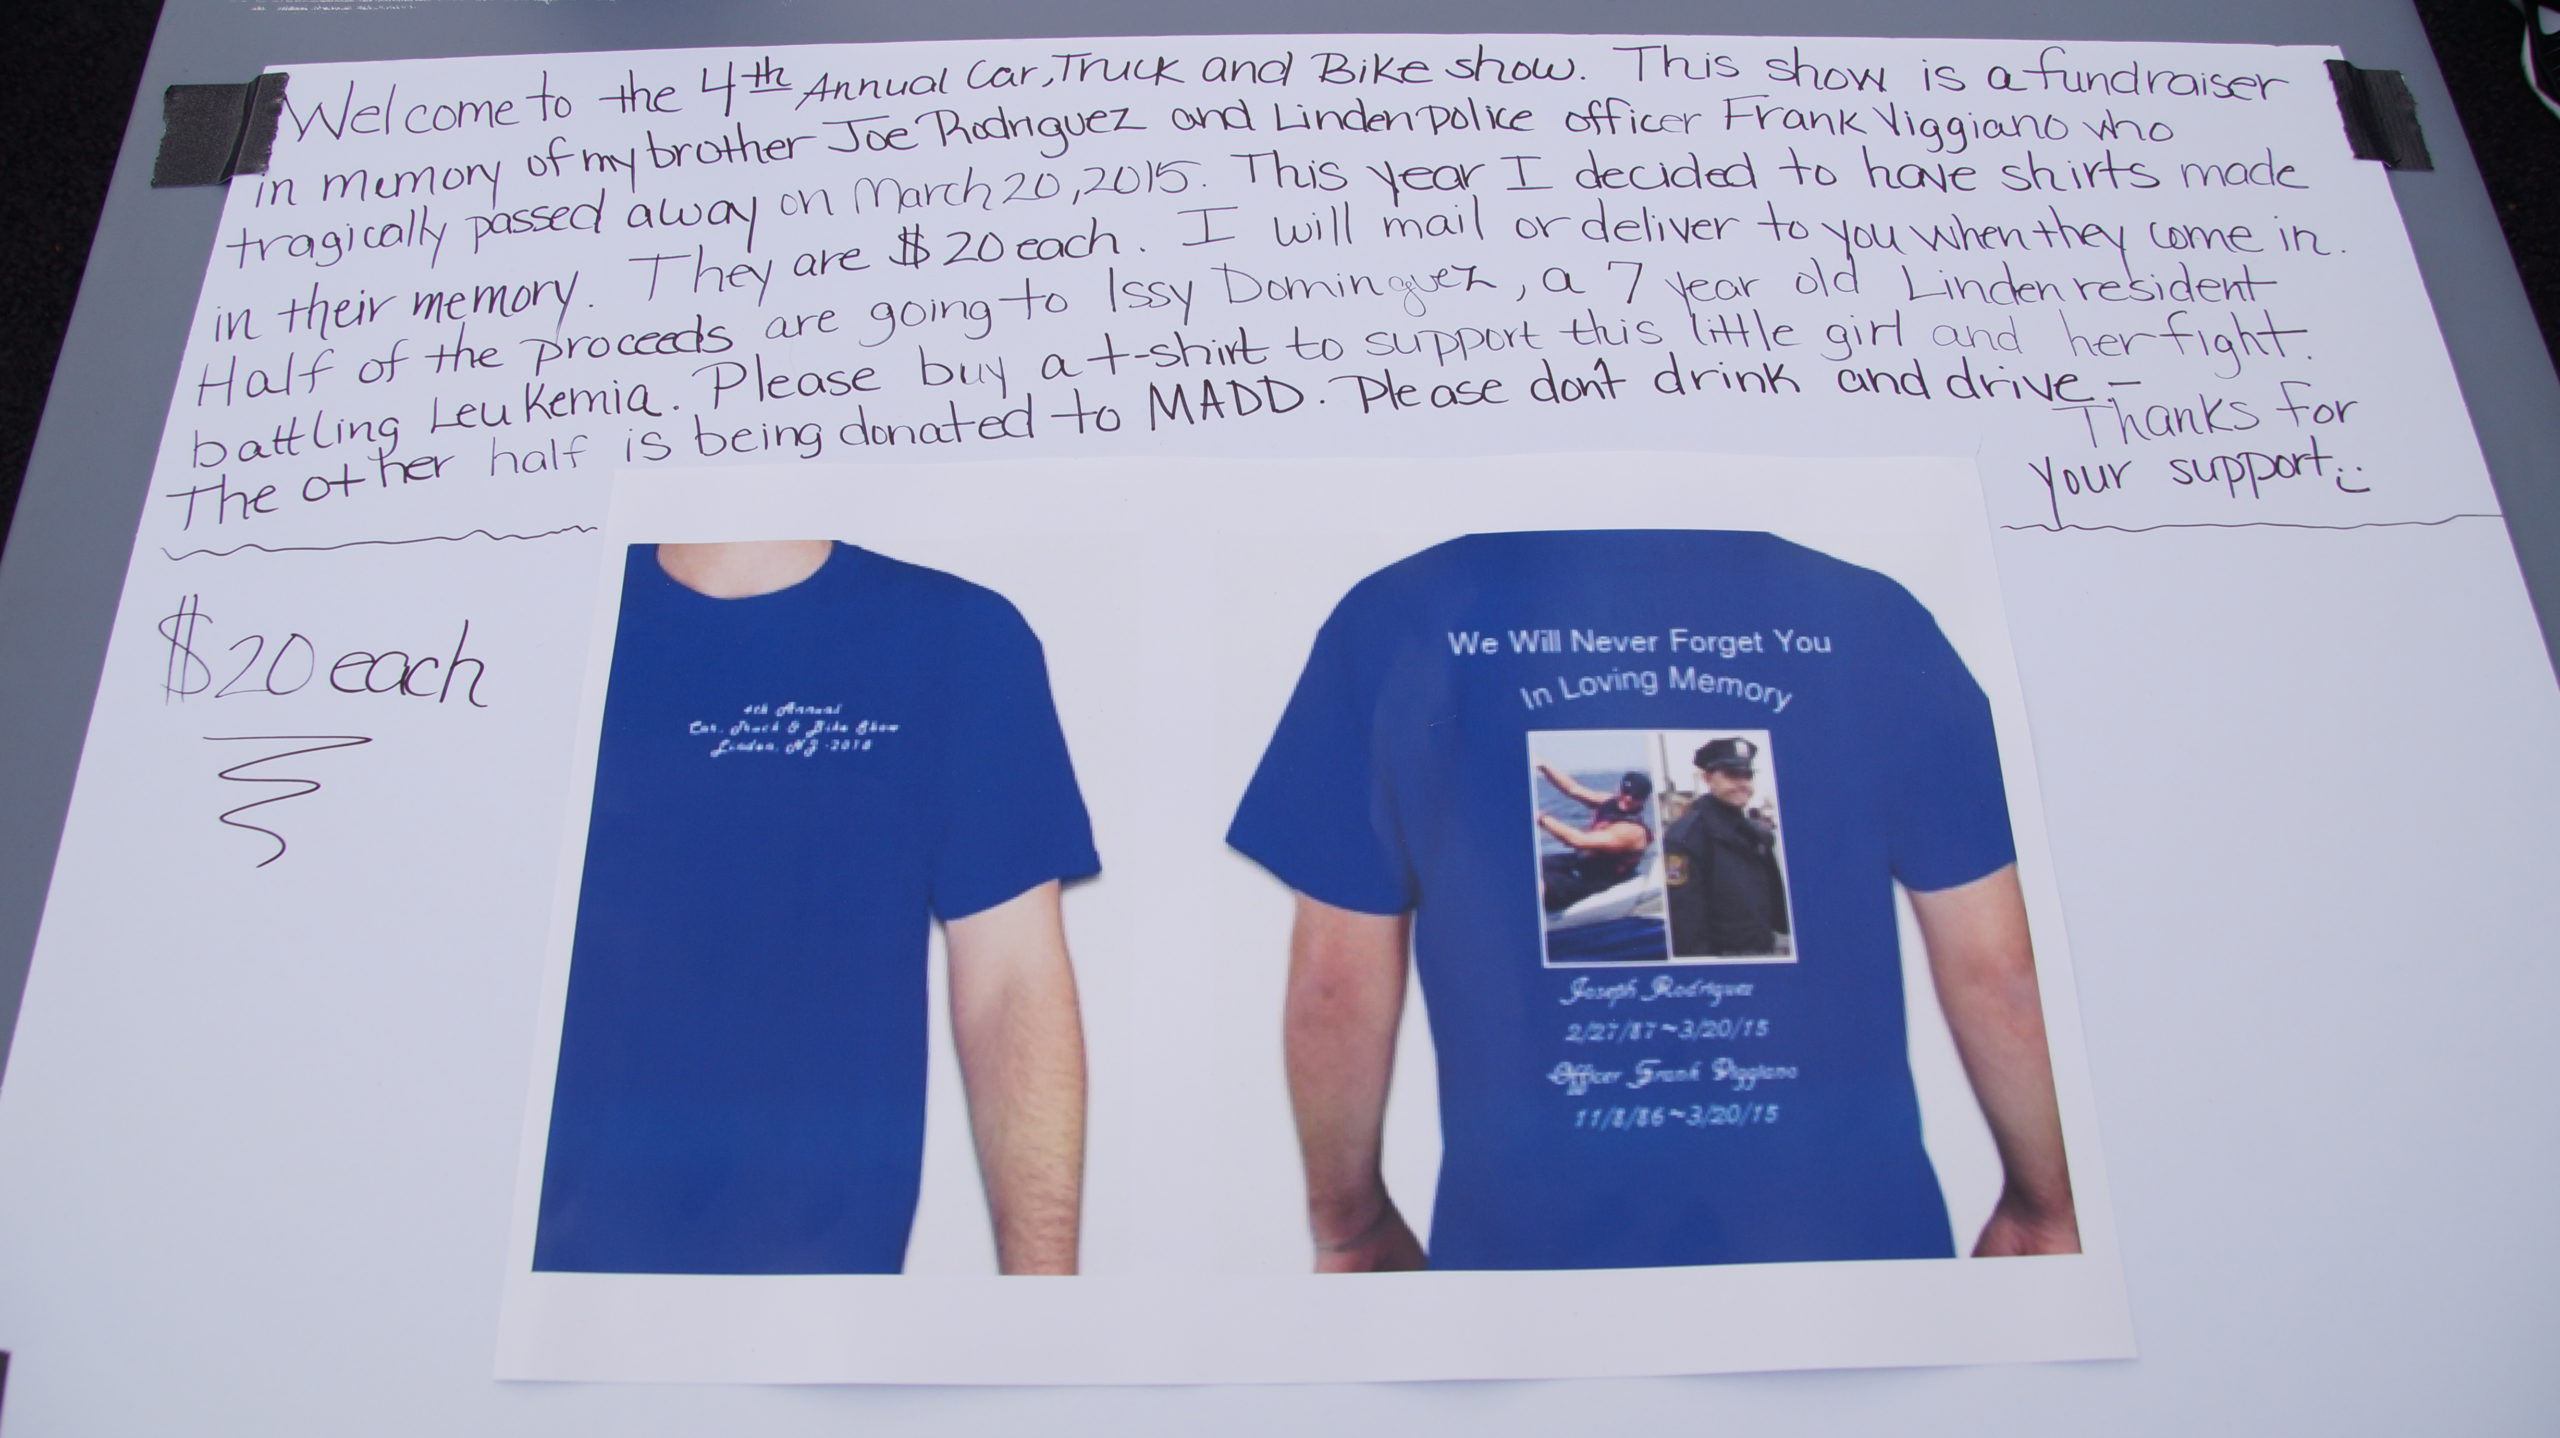 Welcome to the 4th Annual Car, Truck and Bike show. This show is a fundraiser
in memory of my brother Joe Rodriguez and Linden police officer Frank Viggiano who
tragically passed away on March 20, 2015. This year I decided to have shirts made
in their memory. They are $20 each. I will mail or deliver to you when they come in.
Half of the proceeds are going to Issy Dominguez, a 7 year old Linden resident
battling Leukemia. Please buy a t-shirt to support this little girl and her fight.
The other half is being donated to MADD. Please don't drink and drive.-
Thanks for
your support
$20 each
4th Annual
Car, Truck & Bike Show
Linden, NJ -2018
We Will Never Forget You
In Loving Memory
Joseph Rodriguez
2/27/87~3/20/15
Officer Frank Viggiano
11/8/86~3/20/15